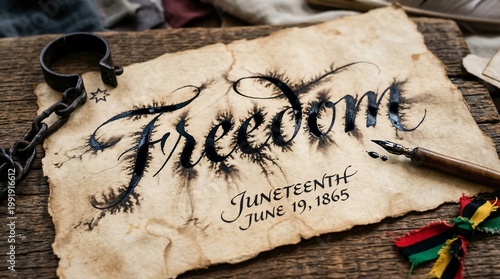 Freedom
JUNETEENTH
JUNE 19, 1865
1991916612